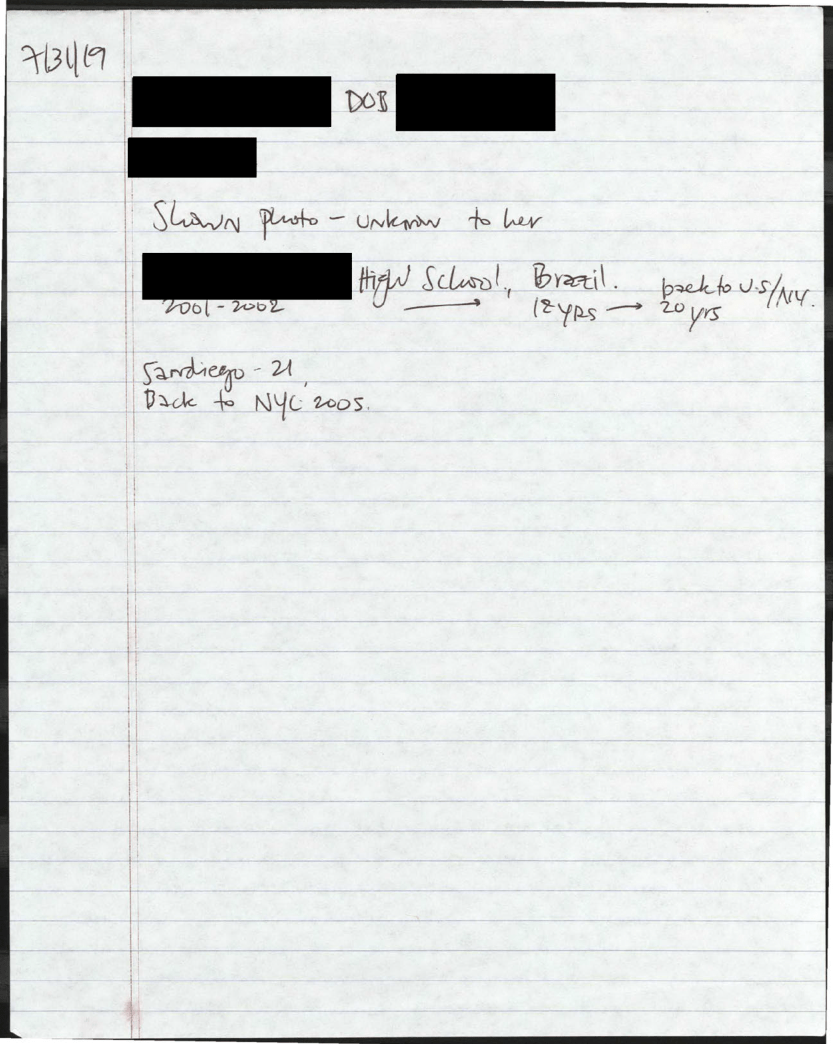 7/31/19
DOB
Shown photo - unknown to her
High School, Brazil. back to U.S/N.Y.
2001-2002 → 18 yrs → 20 yrs
Sandiego - 21
Back to NYC 2005.